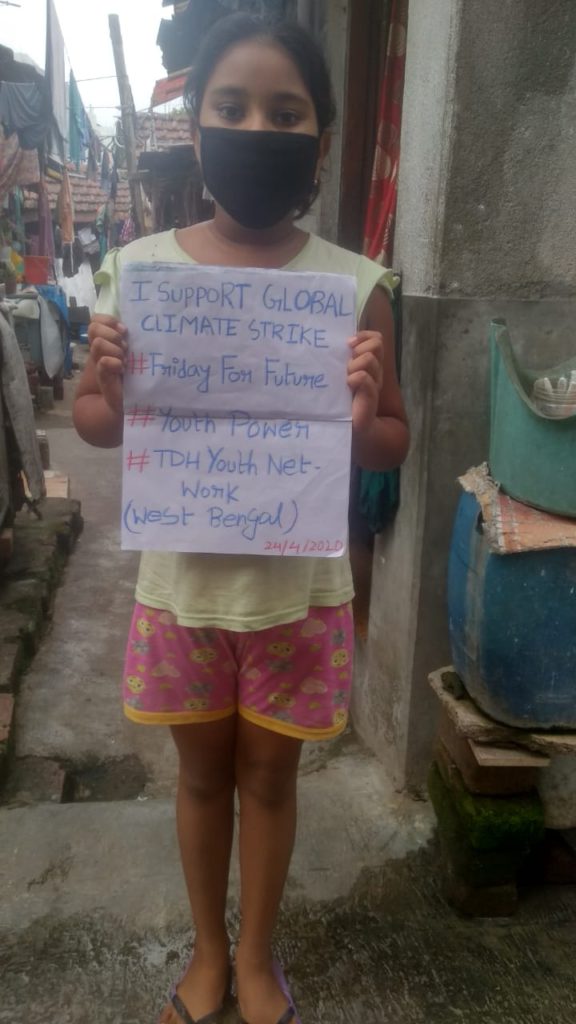 I SUPPORT GLOBAL
CLIMATE STRIKE
#Friday For Future
#Youth Power
# TDH Youth Net-
Work
(West Bengal)
24/4/2020